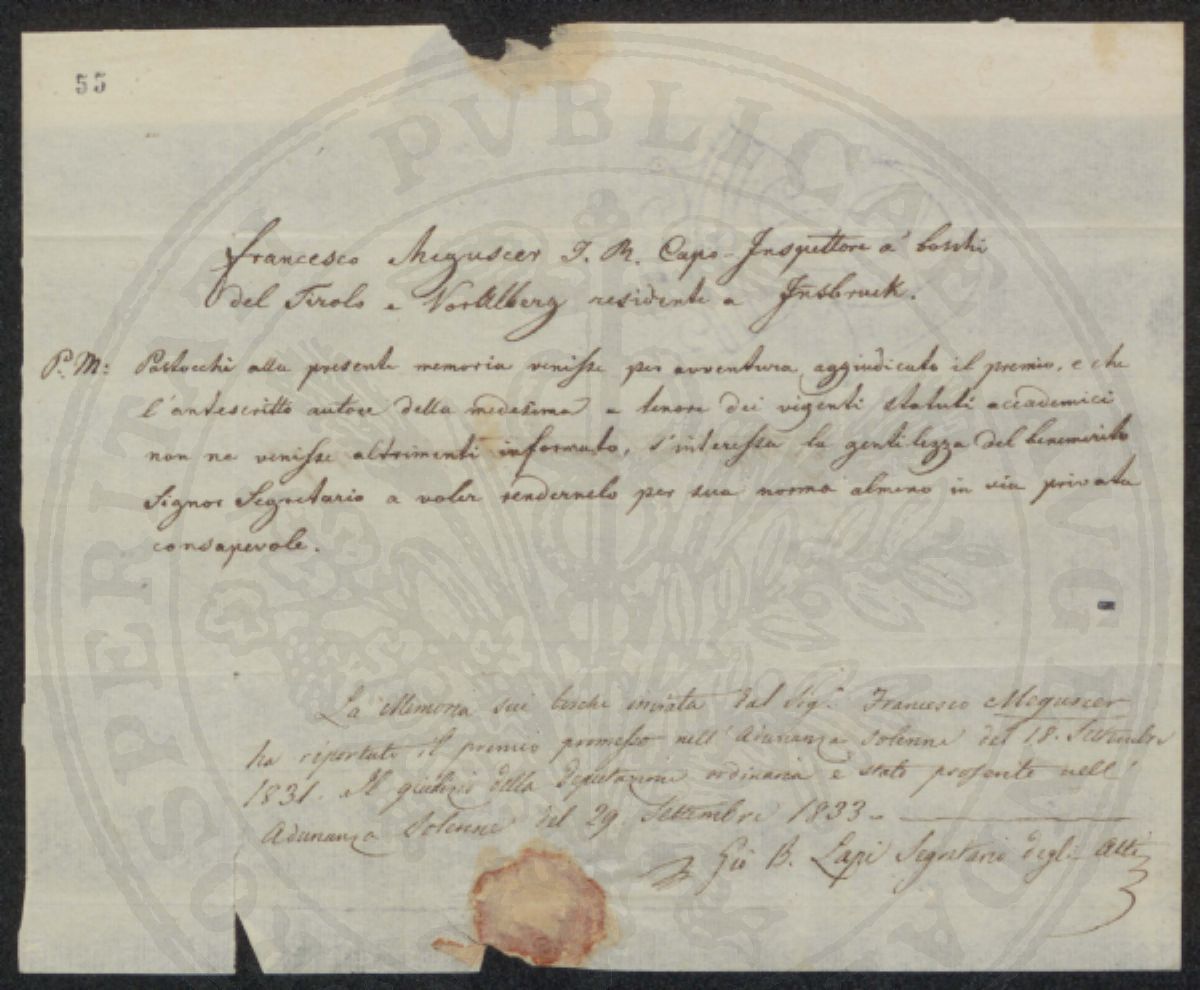 55
Francesco Meguscer I. R. Capo-Inspettore a' boschi
del Tirolo e Vorarlberg residente a Jnsbruck.
P. M: alla presente memoria venisse per avventura aggiudicato il premio, e che
l'antescritto autore della medesima a tenore dei vigenti statuti accademici
non ne venisse altrimenti informato, s'interessa la gentilezza del benemerito
Signor Segretario a voler rendernelo per sua norma almeno in via privata
consapevole.
La Memoria sui boschi inviata dal Sig.r Francesco Meguscer
ha riportato il premio promesso nell'Adunanza Solenne del 18. Settembre
1831. Il giudizio della Deputazione ordinaria è stato proferito nell'
Adunanza Solenne del 29 Settembre 1833.
Gio B. Lapi Segretario degli Atti